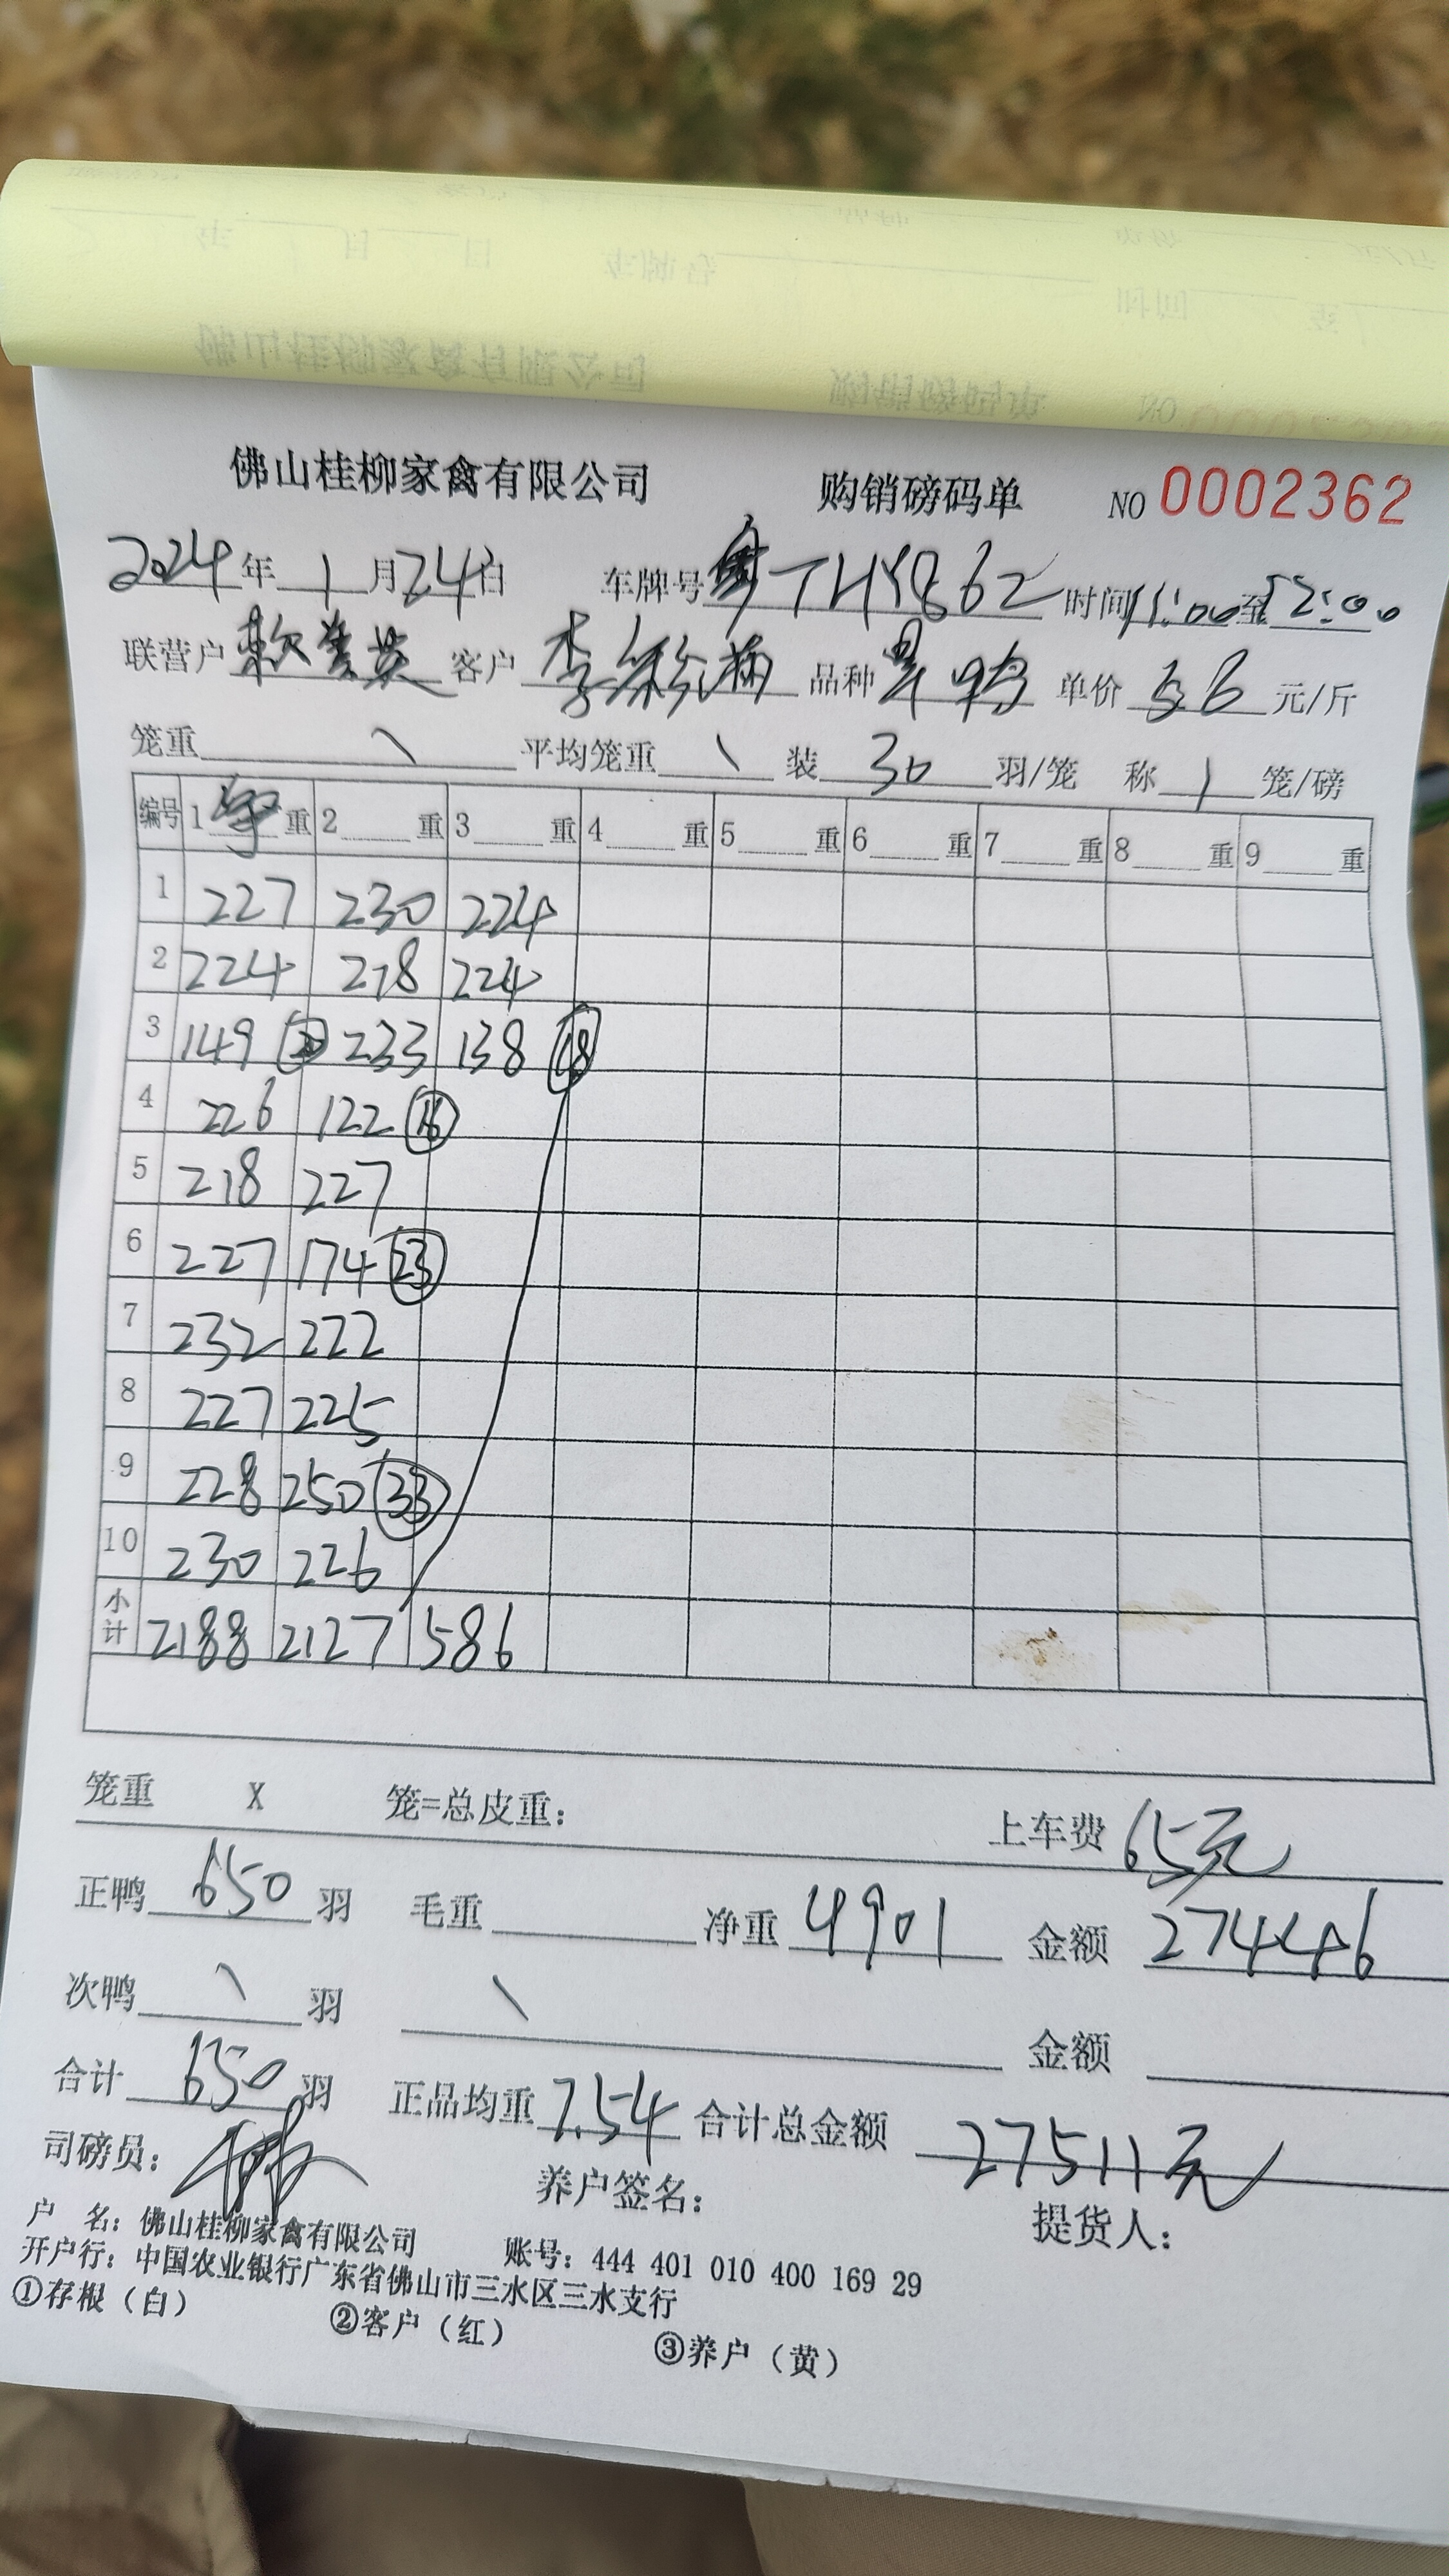 佛山桂柳家禽有限公司 购销磅码单 NO 0002362
2024年1月24日 车牌号粤THY862 时间11:00至12:00
联营户 客户李 品种 鸭 单价5.6元/斤
笼重\ 平均笼重\ 装30羽/笼 称1笼/磅
编号 1净重 2重 3重 4重 5重 6重 7重 8重 9重
1 227 230 224
2 224 218 224
3 149 233 138 18
4 226 122 16
5 218 227
6 227 174 23
7 232 222
8 227 225
9 228 250 33
10 230 226
小计 2188 2127 586
笼重 X 笼=总皮重: 上车费65元
正鸭650羽 毛重 净重4901 金额27446
次鸭\羽 \ 金额
合计650羽 正品均重7.54 合计总金额27511元
司磅员: 养户签名: 提货人:
户 名: 佛山桂柳家禽有限公司 账号: 444 401 010 400 169 29
开户行: 中国农业银行广东省佛山市三水区三水支行
①存根(白) ②客户(红) ③养户(黄)